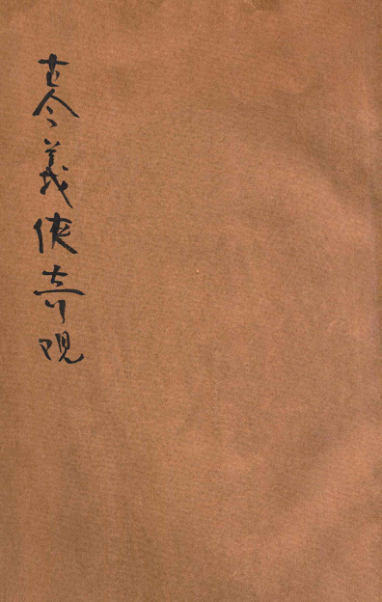 古今義俠奇观